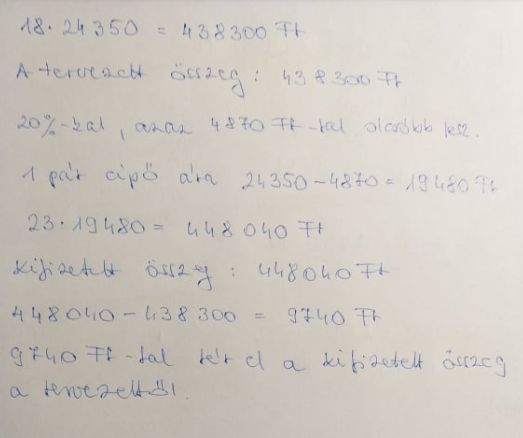 18 · 24350 = 438300 Ft
A tervezett összeg : 438300 Ft
20%-kal, azaz 4870 Ft-tal olcsóbb lesz.
1 pár cipő ára 24350 - 4870 = 19480 Ft
23 · 19480 = 448040 Ft
Kifizetett összeg : 448040 Ft
448040 - 438300 = 9740 Ft
9740 Ft-tal tér el a kifizetett összeg
a tervezettől.